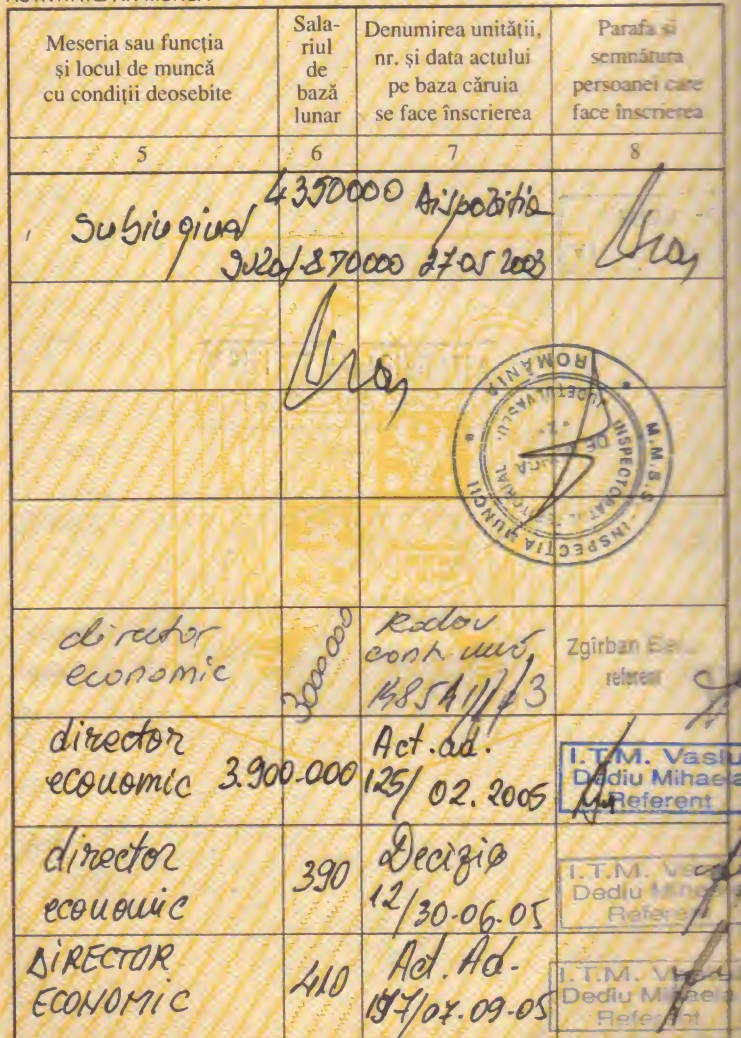 Meseria sau funcția
și locul de muncă
cu condiții deosebite
Sala-
riul
de
bază
lunar
Denumirea unității,
nr. și data actului
pe baza căruia
se face înscrierea
Parafa și
semnătura
persoanei care
face înscrierea
5
6
7
8
Subinginer
4350000
870000
Dispoziția
27.05 2003
ROMÂNIA
M.M.S.S. - INSPECȚIA MUNCII
INSPECTORATUL TERITORIAL DE MUNCĂ
JUDEȚUL VASLUI
director
economic
3000000
contr.
Zgîrban
referent
director
economic
3.900.000
Act. ad.
125/ 02. 2005
I.T.M. Vaslu
Dediu Mihaela
Referent
director
economic
390
Decizie
12/30-06-05
I.T.M.
Dediu
Referent
DIRECTOR
ECONOMIC
410
Act. Ad.
197/07.09-05
I.T.M.
Dediu Mihaela
Referent